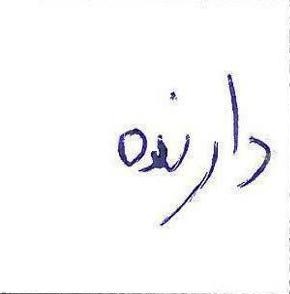 دارنده